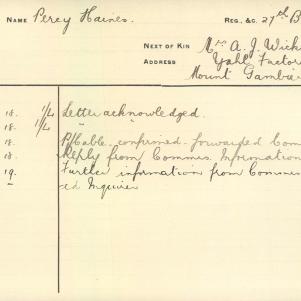 NAME Percy Haines. REG. &C. 27th B
NEXT OF KIN Mrs A. J. Wick
ADDRESS Yahl Factor
Mount Gambie
18. 1/4 Letter acknowledged.
18. 1/4 " "
18. Cable confirmed. forwarded Com
18. Reply from Commis. Information
19. Further information from Commis
ed Inquiries